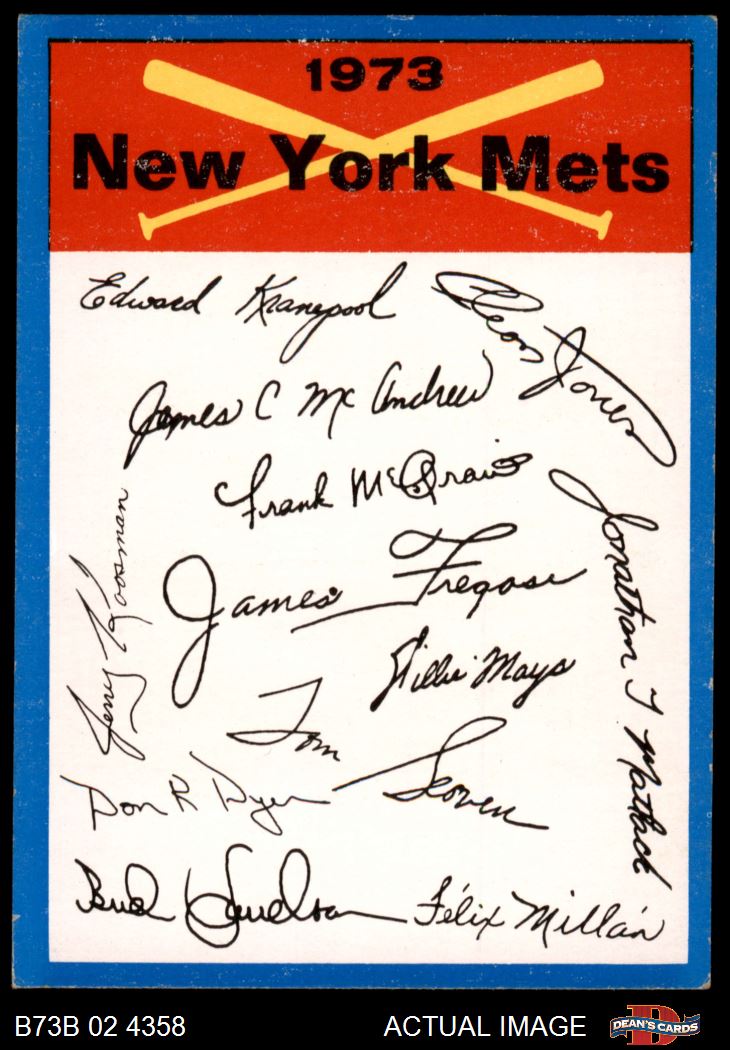 1973
New York Mets
Edward Kranepool
Cleon Jones
James C McAndrew
Frank McGraw
Jonathan T Matlack
Jerry Koosman
James Fregosi
Willie Mays
Tom Seaver
Don R Dyer
Bud Harrelson
Félix Millán
B73B 02 4358
ACTUAL IMAGE
DEAN'S CARDS